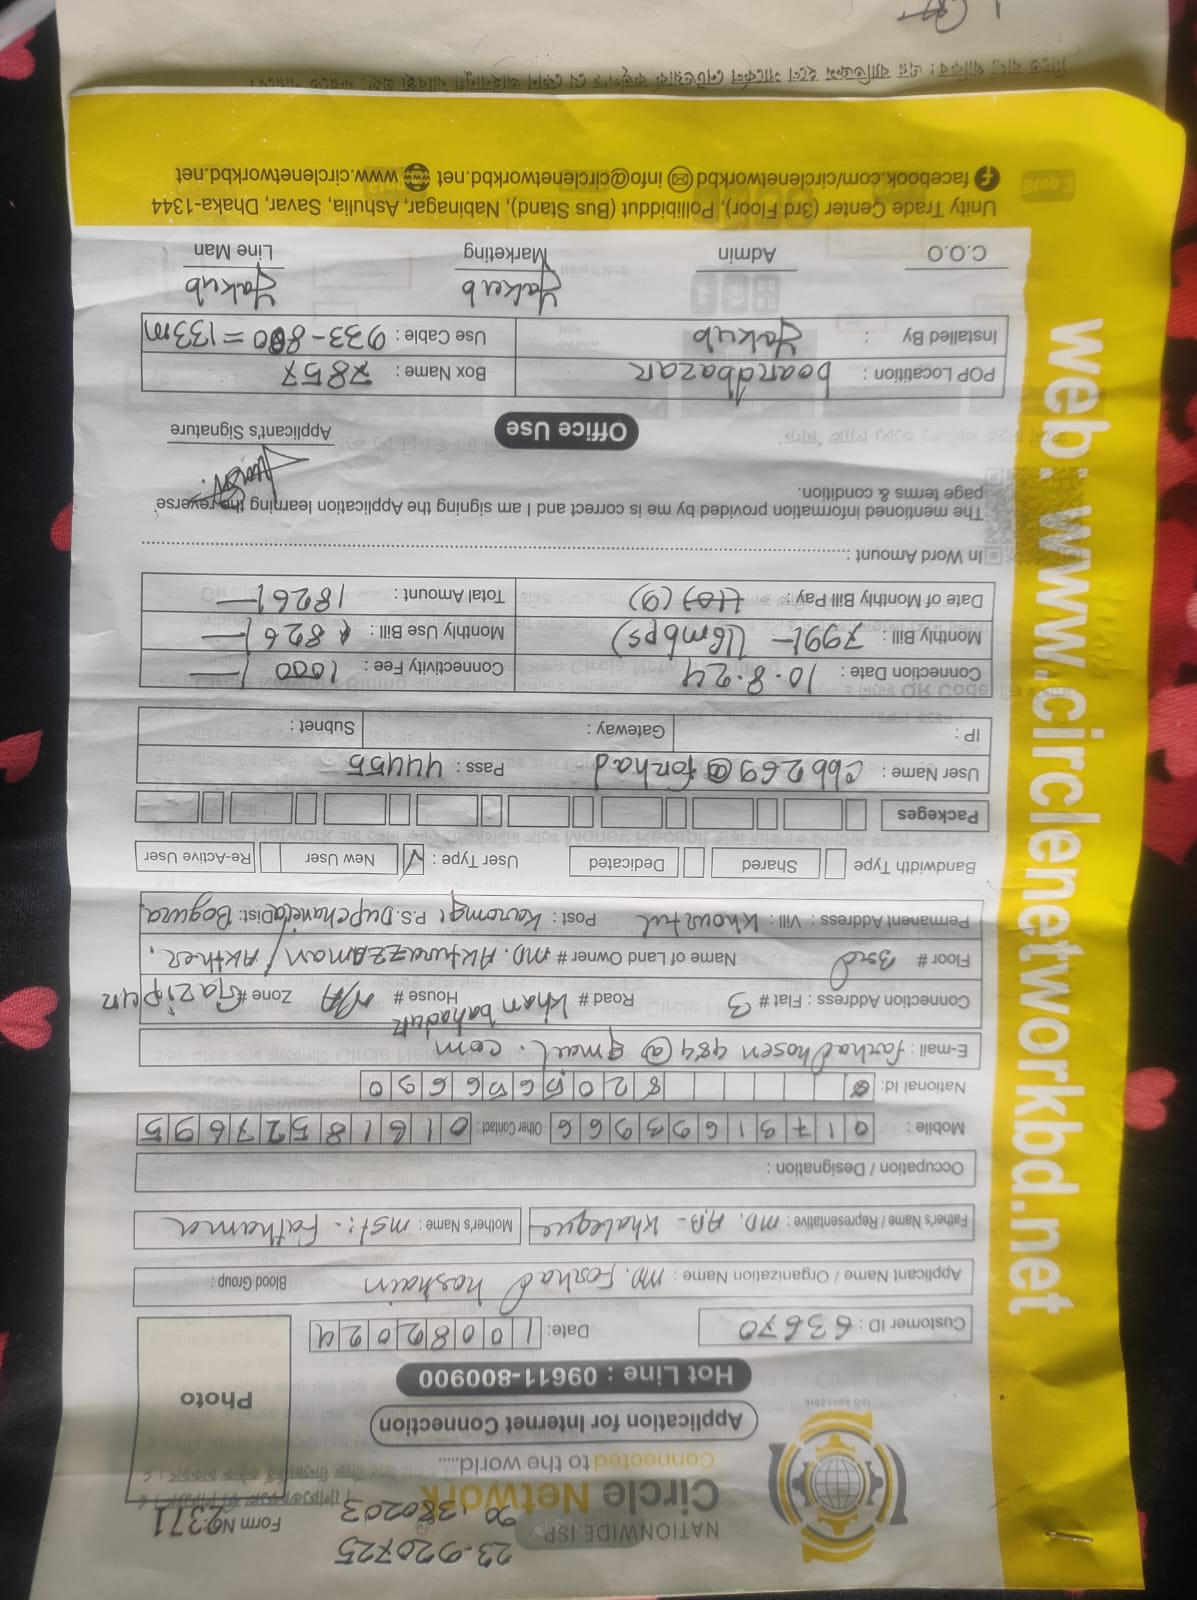 23-920725
90.380203
NATIONWIDE ISP
Circle Network
Connected to the world.....
Form No: 2371
Application for Internet Connection
Hot Line : 09611-800900
Photo
ISO 9001:2015
Customer ID : 63670 Date: 10082024
Applicant Name / Organization Name : MD. Forhad hoshain Blood Group :
Father's Name / Representative : MD. A.B - Khaleque Mother's Name : mst:- Fathama
Occupation / Designation :
Mobile : 01731693966 Other Contact : 01618527695
National Id: 8205656690
E-mail : farhadhosen484@gmail.com
Connection Address : Flat # 3 Road # Khan bahadur House # N/A Zone # Gazipur
Floor # 3rd Name of Land Owner # MD. Akturuzzaman / Akther.
Permanent Address : Vill : Post : P.S. Dupchanchia Dist: Bogura
Bandwidth Type Shared Dedicated User Type : ✓ New User Re-Active User
Packeges
User Name : cbb269@forhad Pass : 44455
IP : Gateway : Subnet :
Connection Date : 10.8.24 Connectivity Fee : 1000/-
Monthly Bill : 799/- (16mbps) Monthly Use Bill : 826/-
Date of Monthly Bill Pay : (10) (9) Total Amount : 1826/-
In Word Amount :
The mentioned information provided by me is correct and I am signing the Application learning the reverse
page terms & condition.
Applicant's Signature
Office Use
POP Locatition : boardbazar Box Name : 7857
Installed By : Yakub Use Cable : 933-800 = 133m
Yakub Yakub
C.O.O Admin Marketing Line Man
Unity Trade Center (3rd Floor), Pollibiddut (Bus Stand), Nabinagar, Ashulia, Savar, Dhaka-1344
facebook.com/circlenetworkbd info@circlenetworkbd.net www.circlenetworkbd.net
web: www.circlenetworkbd.net